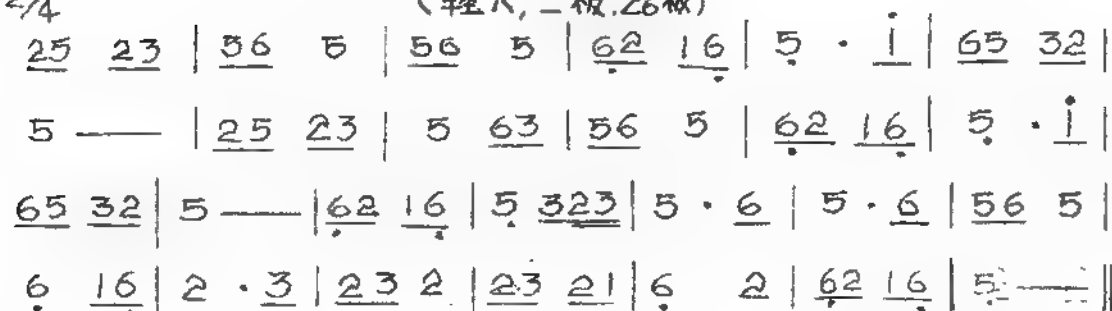 2/4
25 23 | 56 5 | 56 5 | 6̣2 16̣ | 5̣ · i̇ | 65 32 |
5 — | 25 23 | 5 63 | 56 5 | 6̣2 16̣ | 5̣ · i̇ |
65 32 | 5 — | 6̣2 16̣ | 5̣ 323 | 5 · 6 | 5 · 6 | 56 5 |
6̣ 16̣ | 2 · 3 | 23 2 | 23 21 | 6̣ 2 | 6̣2 16̣ | 5̣ — ||